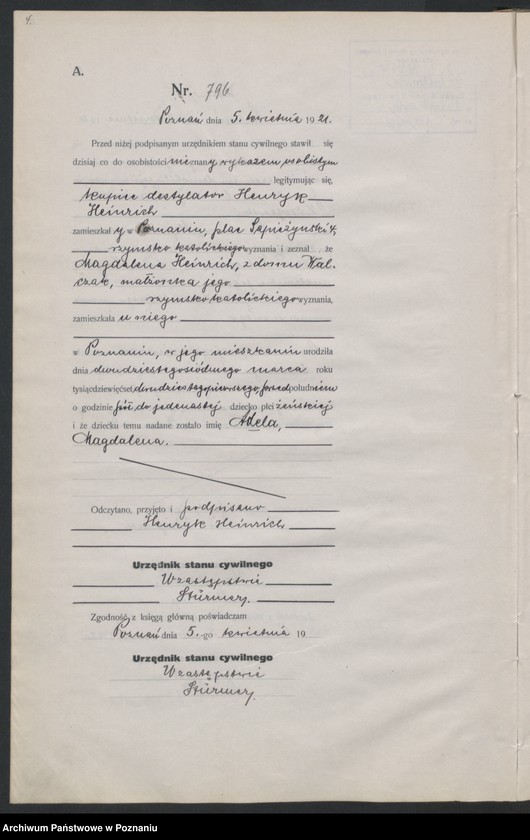 4.
A.
Nr. 796
Poznań dnia 5. kwietnia 1921.
Przed niżej podpisanym urzędnikiem stanu cywilnego stawił się
dzisiaj co do osobistości nieznany wykazem osobistym
legitymując się,
kupiec destylator Henryk
Heinrich
zamieszkały w Poznaniu, plac Sapieżyński 4,
rzymsko katolickiego wyznania i zeznał że
Magdalena Heinrich, z domu Wal-
czak, małżonka jego
rzymsko katolickiego wyznania,
zamieszkała u niego
w Poznaniu, w jego mieszkaniu urodziła
dnia dwudziestego siódmego marca roku
tysiącdziewięćset dwudziestego pierwszego, przed południem
o godzinie pół do jedenastej dziecko płci żeńskiej
i że dziecku temu nadane zostało imię Adela,
Magdalena.
Odczytano, przyjęto i podpisano
Henryk Heinrich
Urzędnik stanu cywilnego
W zastępstwie
Stürmer.
Zgodność z księgą główną poświadczam
Poznań dnia 5.-go kwietnia 19
Urzędnik stanu cywilnego
W zastępstwie
Stürmer.
Archiwum Państwowe w Poznaniu